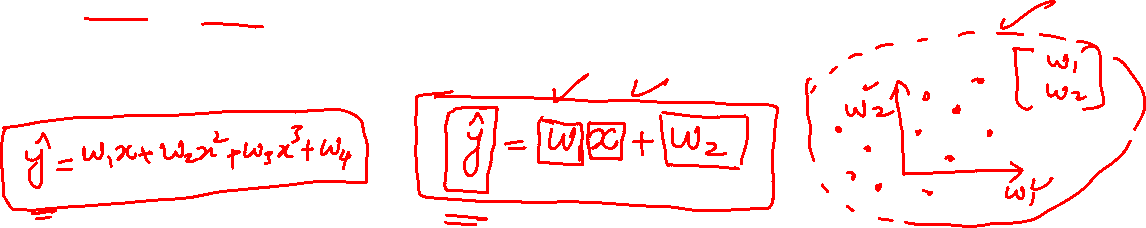 ŷ = w₁x + w₂x² + w₃x³ + w₄
ŷ = w₁x + w₂
[w₁
w₂]
w₂
w₁